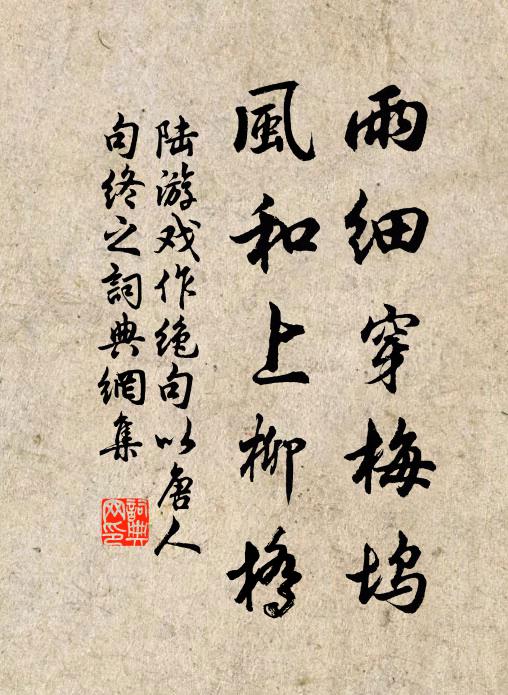 雨細穿梅塢
風和上柳橋
陆游戏作绝句以唐人
句终之詞典網集
詞典网印